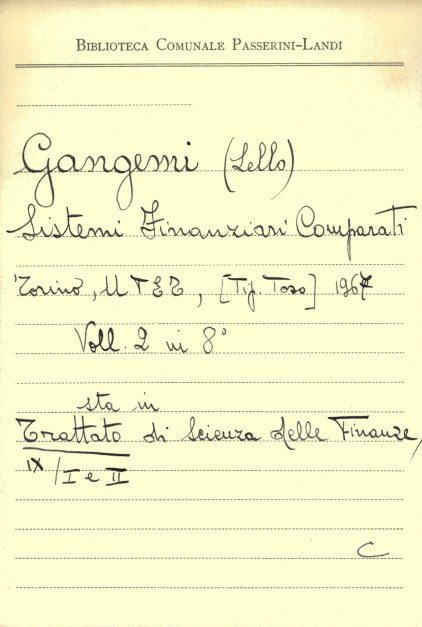 BIBLIOTECA COMUNALE PASSERINI-LANDI
Gangemi (Lello)
Sistemi Finanziari Comparati
Torino, UTET, [Tip. Toso] 1967
Voll. 2 in 8°
sta in
Trattato di Scienza delle Finanze,
IX/I e II
C